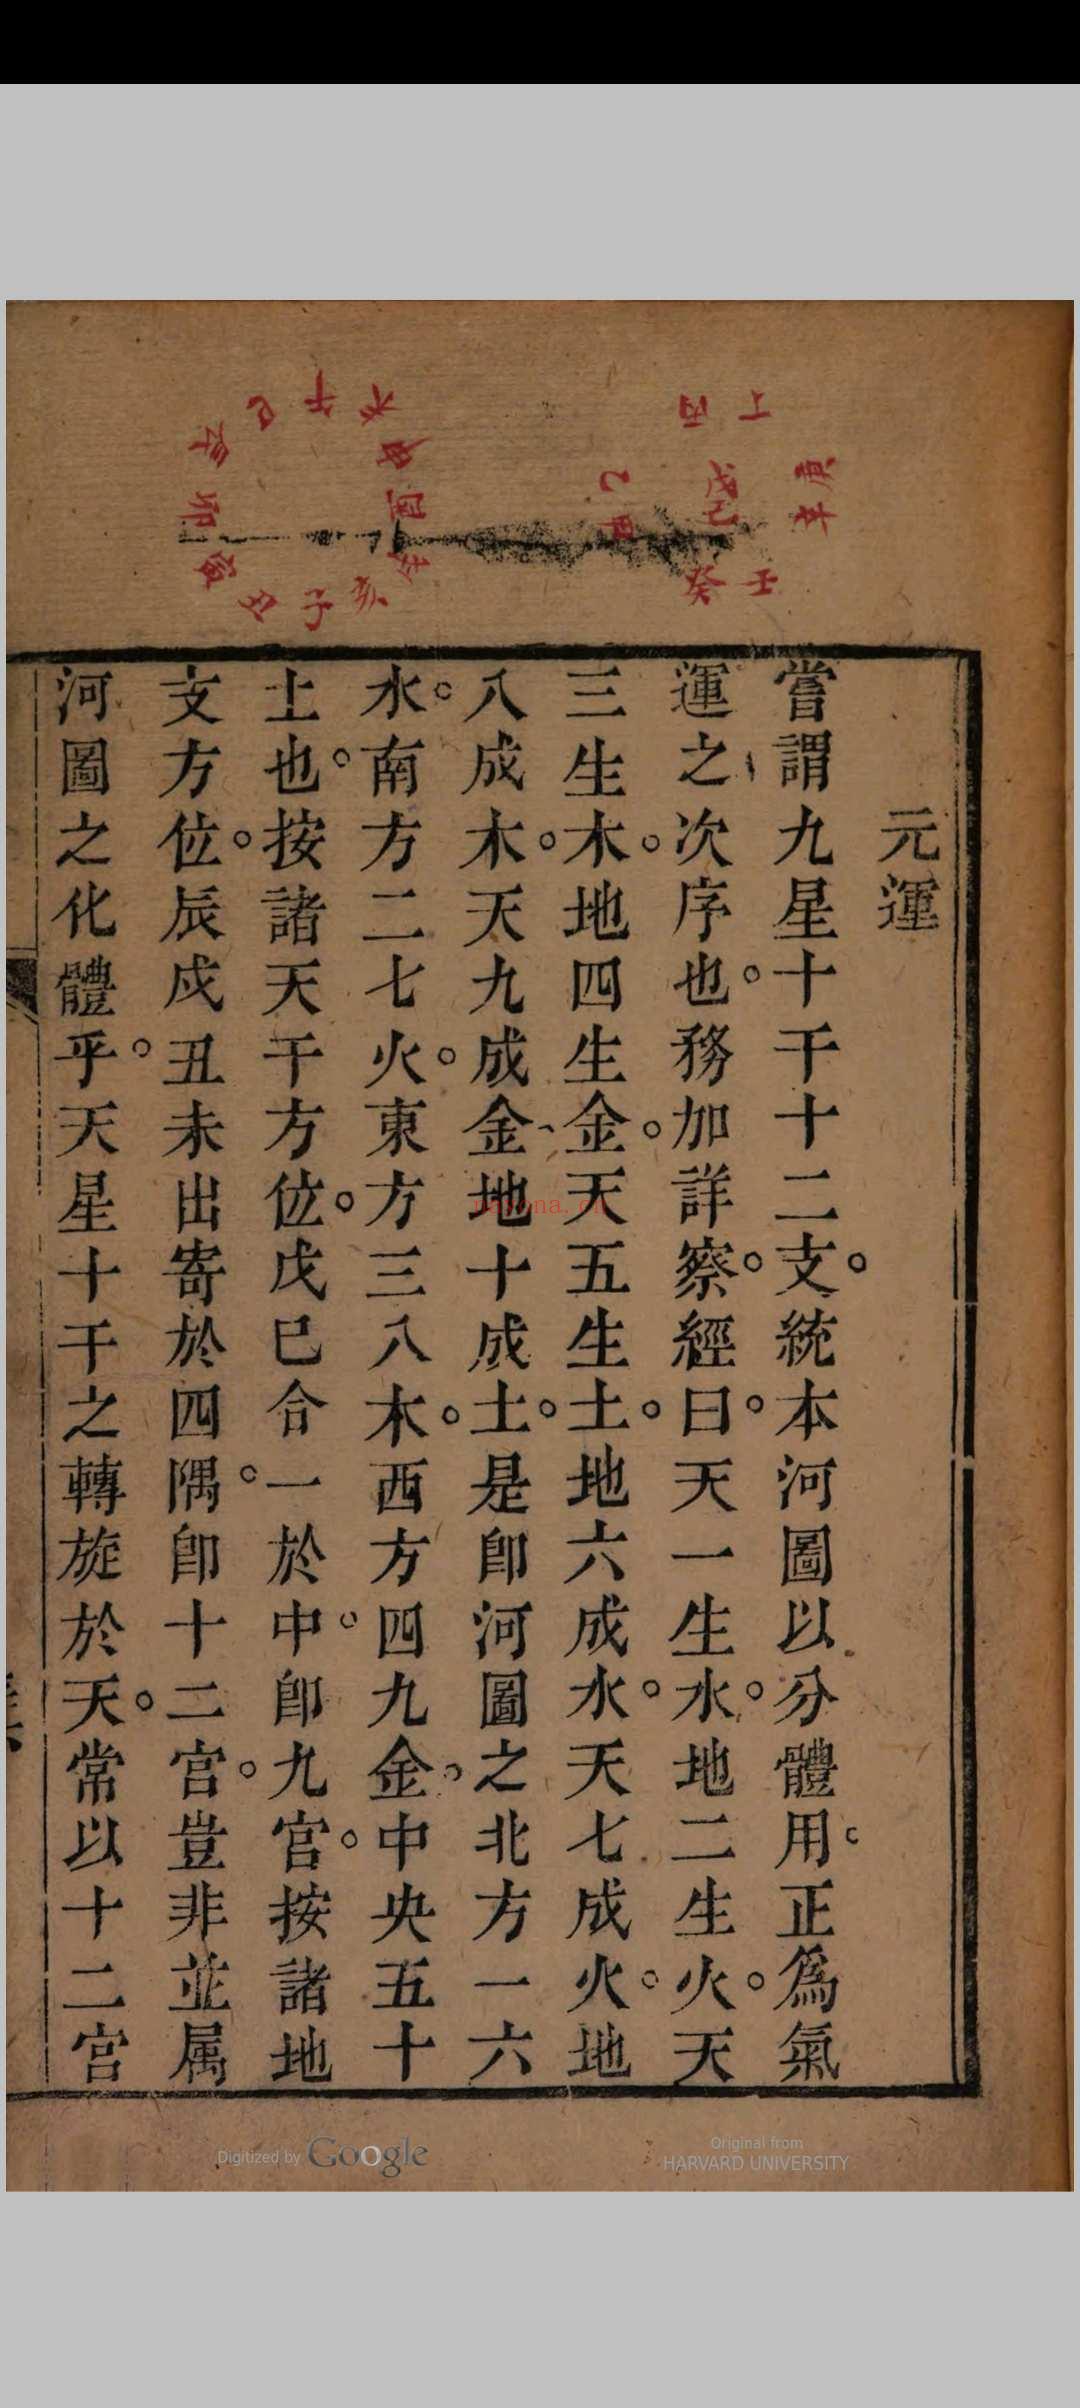 元運
嘗謂九星十干十二支。統本河圖以分體用。正爲氣
運之次序也。務加詳察。經曰。天一生水。地二生火。天
三生木。地四生金。天五生土。地六成水。天七成火。地
八成木。天九成金、地十成土。是卽河圖之北方一六
水。南方二七火。東方三八木。西方四九金、中央五十
土也。按諸天干方位。戊巳合一於中。卽九宮。按諸地
支方位。辰戍丑未出寄於四隅。卽十二宮。豈非並属
河圖之化體乎。天星十干之轉旋於天。常以十二宮
丁
丙
乙
戊
己
庚
辛
壬
癸
巳
午
未
申
辰
卯
酉
寅
丑
子
亥
nayona.cn
Digitized by Google
Original from
HARVARD UNIVERSITY